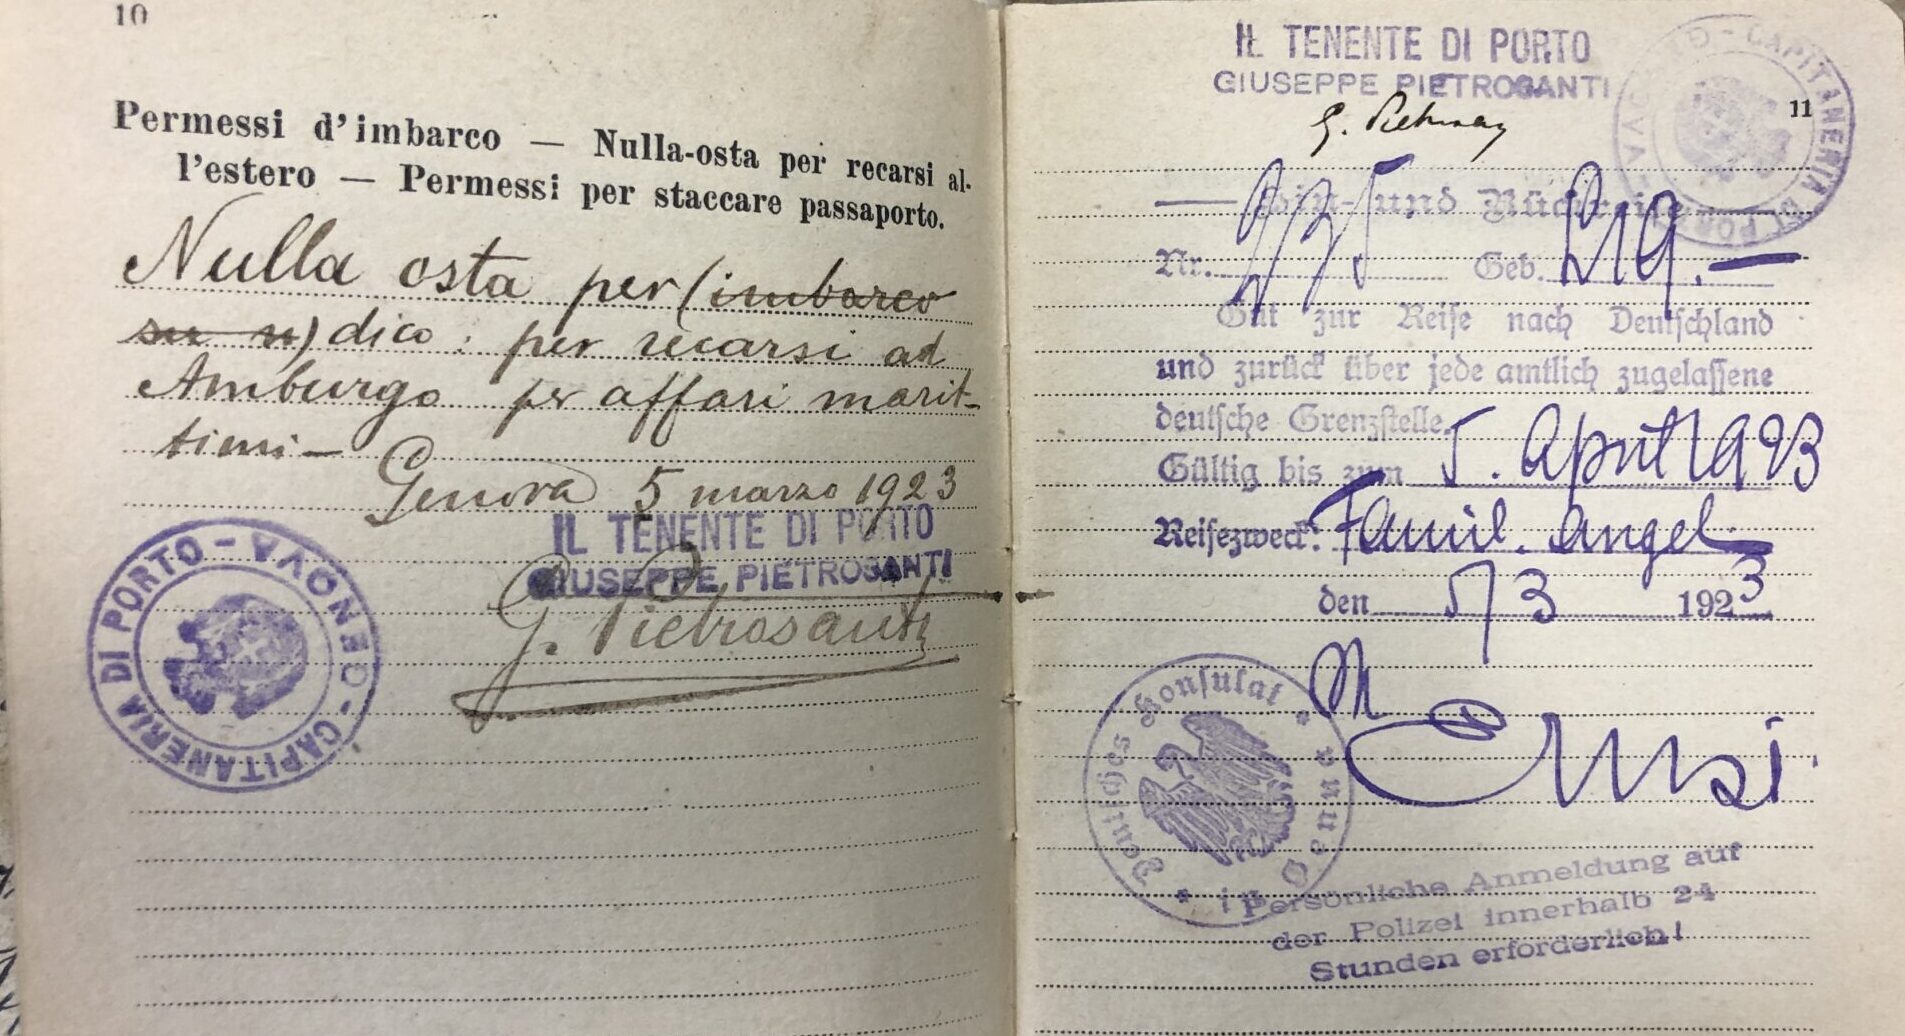 10
Permessi d'imbarco — Nulla-osta per recarsi al-
l'estero — Permessi per staccare passaporto.
Nulla osta per (imbarco
su n) dico: per recarsi ad
Amburgo per affari marit-
timi —
Genova 5 marzo 1923
IL TENENTE DI PORTO
GIUSEPPE PIETROSANTI
G. Pietrosanti
CAPITANERIA DI PORTO - GENOVA -
IL TENENTE DI PORTO
GIUSEPPE PIETROSANTI
11
CAPITANERIA DI PORTO
Ein- und Rückreise
Nr. Geb.
Gut zur Reise nach Deutschland
und zurück über jede amtlich zugelassene
deutsche Grenzstelle.
Gültig bis zum 5. April 1923
Reisezweck: Famil. Angel.
den 5/3 1923
Deutsches Konsulat * Genua *
Persönliche Anmeldung auf
der Polizei innerhalb 24
Stunden erforderlich!